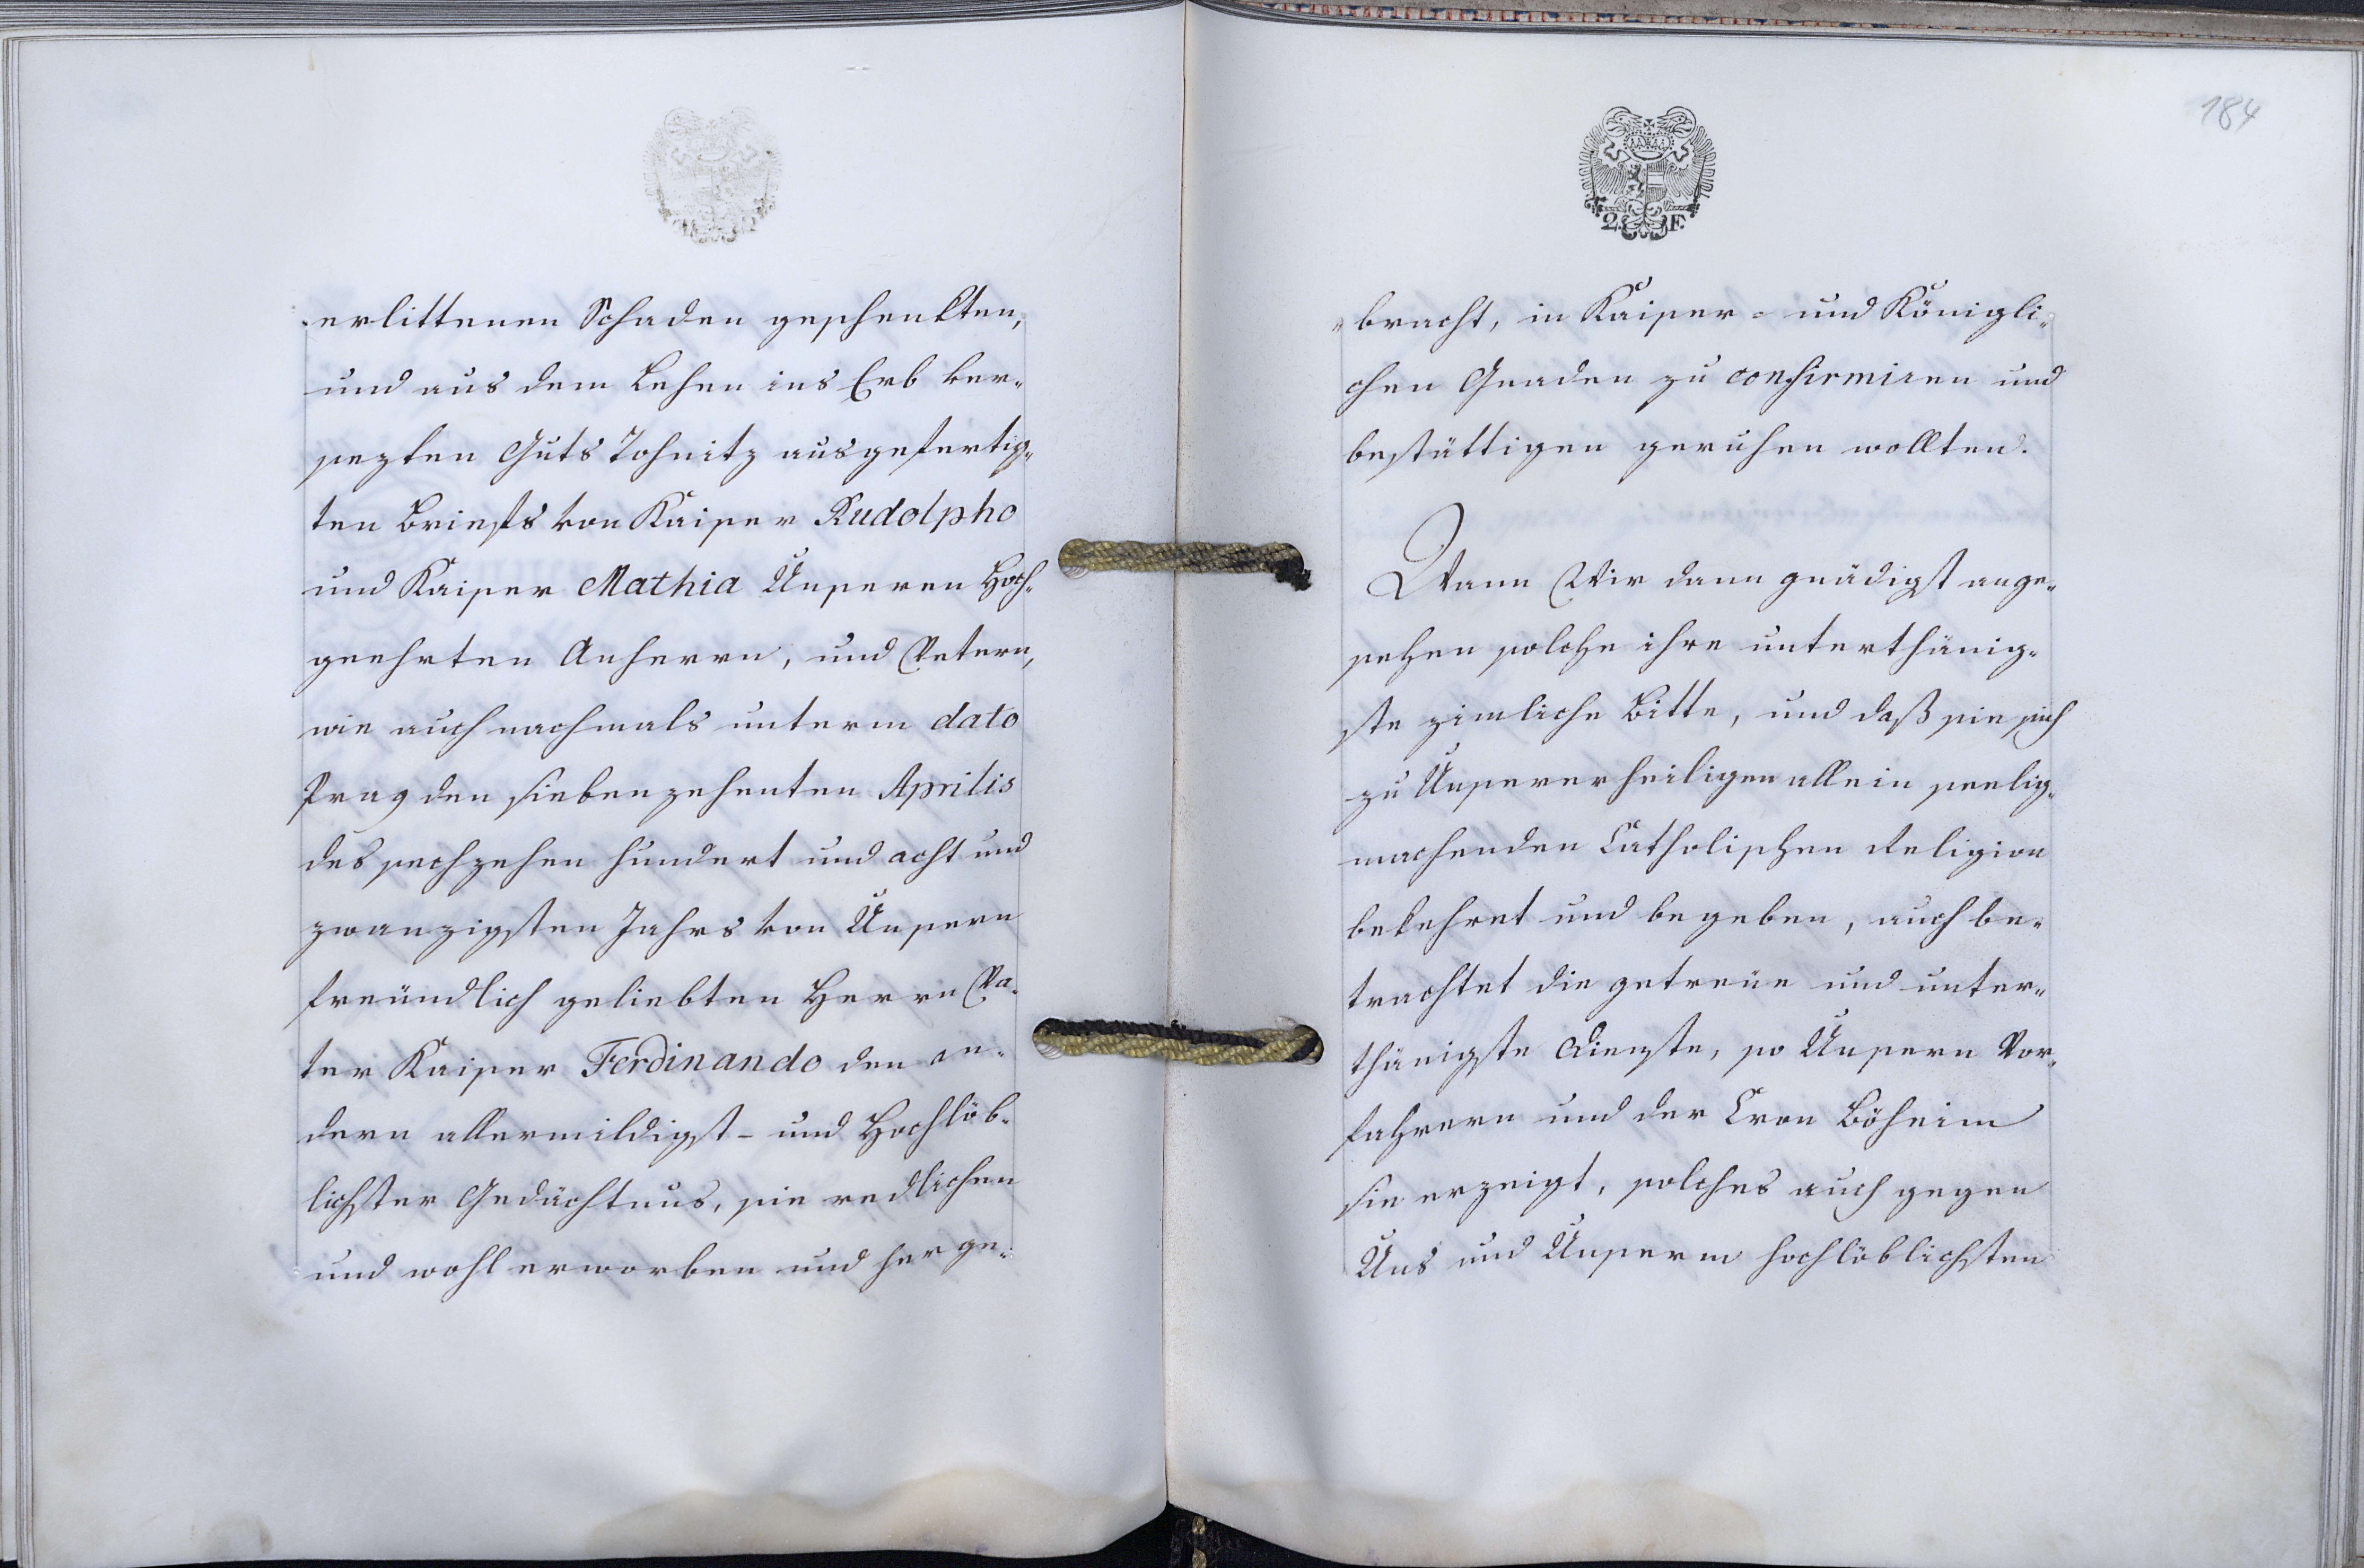 erlittenen Schaden geschenkten,
und aus dem Lehen ins Erb ver„
sezten Guts Tohnitz ausgefertig„
ten Briefs von Kaiser Rudolpho
und Kaiser Mathia Unseren Hoch„
geehrten Anherrn, und Vetern,
wie auch nachmals unterm dato
Prag den siebenzehenten Aprilis
des sechzehen hundert und acht und
zwanzigsten Jahrs von Unsern
freündlich geliebten Herrn Va„
ter Kaiser Ferdinando den an„
dern allermildigst- und Hochlöb„
lichster Gedächtnus, sie redlichen
und wohl erworben und herge„
184
2 F.
„bracht, in Kaiser- und Königli„
chen Gnaden zu confirmiren und
bestättigen geruhen wollten.
Wann Wir dann gnädigst ange„
sehen solche ihre unterthänig„
ste zimliche Bitte, und daß sie sich
zu Unserer heiligen allein seelig„
machenden Catholischen Religion
bekehret und begeben, auch be„
trachtet die getreüe und unter„
thänigste Dienste, so Unsern Vor„
fahrern und der Cron Böheim
sie erzeigt, solches auch gegen
Uns und Unserm hochlöblichsten